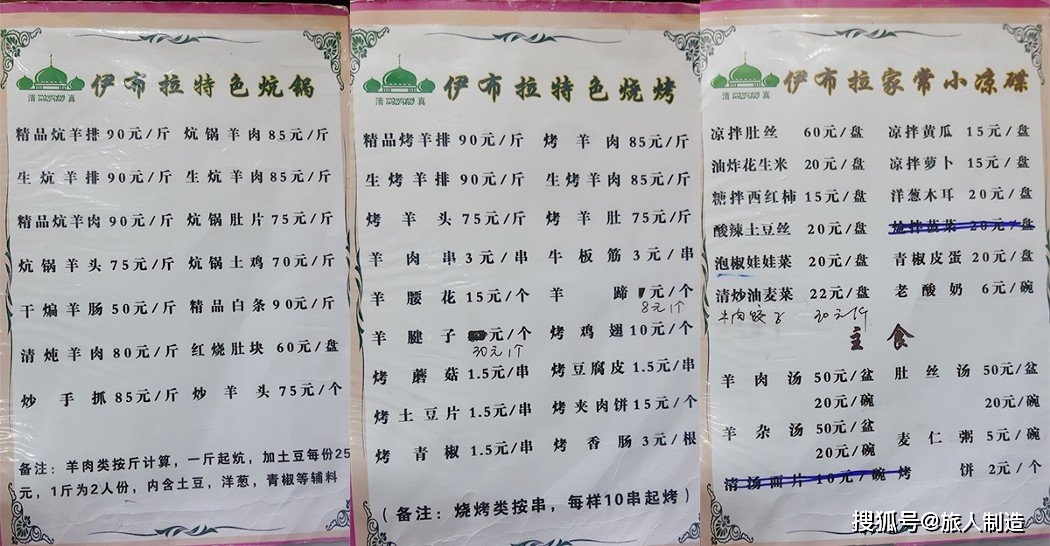 伊布拉特色炕锅
清 真
精品炕羊排 90元/斤 炕锅羊肉 85元/斤
生炕羊排 90元/斤 生炕羊肉 85元/斤
精品炕羊肉 90元/斤 炕锅肚片 75元/斤
炕锅羊头 75元/斤 炕锅土鸡 70元/斤
干煸羊肠 50元/斤 精品白条 90元/斤
清炖羊肉 80元/斤 红烧肚块 60元/盘
炒手抓 85元/斤 炒羊头 75元/个
备注：羊肉类按斤计算，一斤起炕，加土豆每份25
元，1斤为2人份，内含土豆，洋葱，青椒等辅料
伊布拉特色烧烤
清 真
精品烤羊排 90元/斤 烤羊肉 85元/斤
生烤羊排 90元/斤 生烤羊肉 85元/斤
烤羊头 75元/斤 烤羊肚 75元/斤
羊肉串 3元/串 牛板筋 3元/串
羊腰花 15元/个 羊蹄 元/个
8元1个
羊腱子 元/个 烤鸡翅 10元/个
30元1个
烤蘑菇 1.5元/串 烤豆腐皮 1.5元/串
烤土豆片 1.5元/串 烤夹肉饼 15元/个
烤青椒 1.5元/串 烤香肠 3元/根
（备注：烧烤类按串，每样10串起烤）
伊布拉家常小凉碟
清 真
凉拌肚丝 60元/盘 凉拌黄瓜 15元/盘
油炸花生米 20元/盘 凉拌萝卜 15元/盘
糖拌西红柿 15元/盘 洋葱木耳 20元/盘
酸辣土豆丝 20元/盘 20元/盘
泡椒娃娃菜 20元/盘 青椒皮蛋 20元/盘
清炒油麦菜 22元/盘 老酸奶 6元/碗
牛肉饺子 30元1斤
主食
羊肉汤 50元/盆 肚丝汤 50元/盆
20元/碗 20元/碗
羊杂汤 50元/盆
20元/碗 麦仁粥 5元/碗
清汤面片 10元/碗 烤饼 2元/个
搜狐号@旅人制造